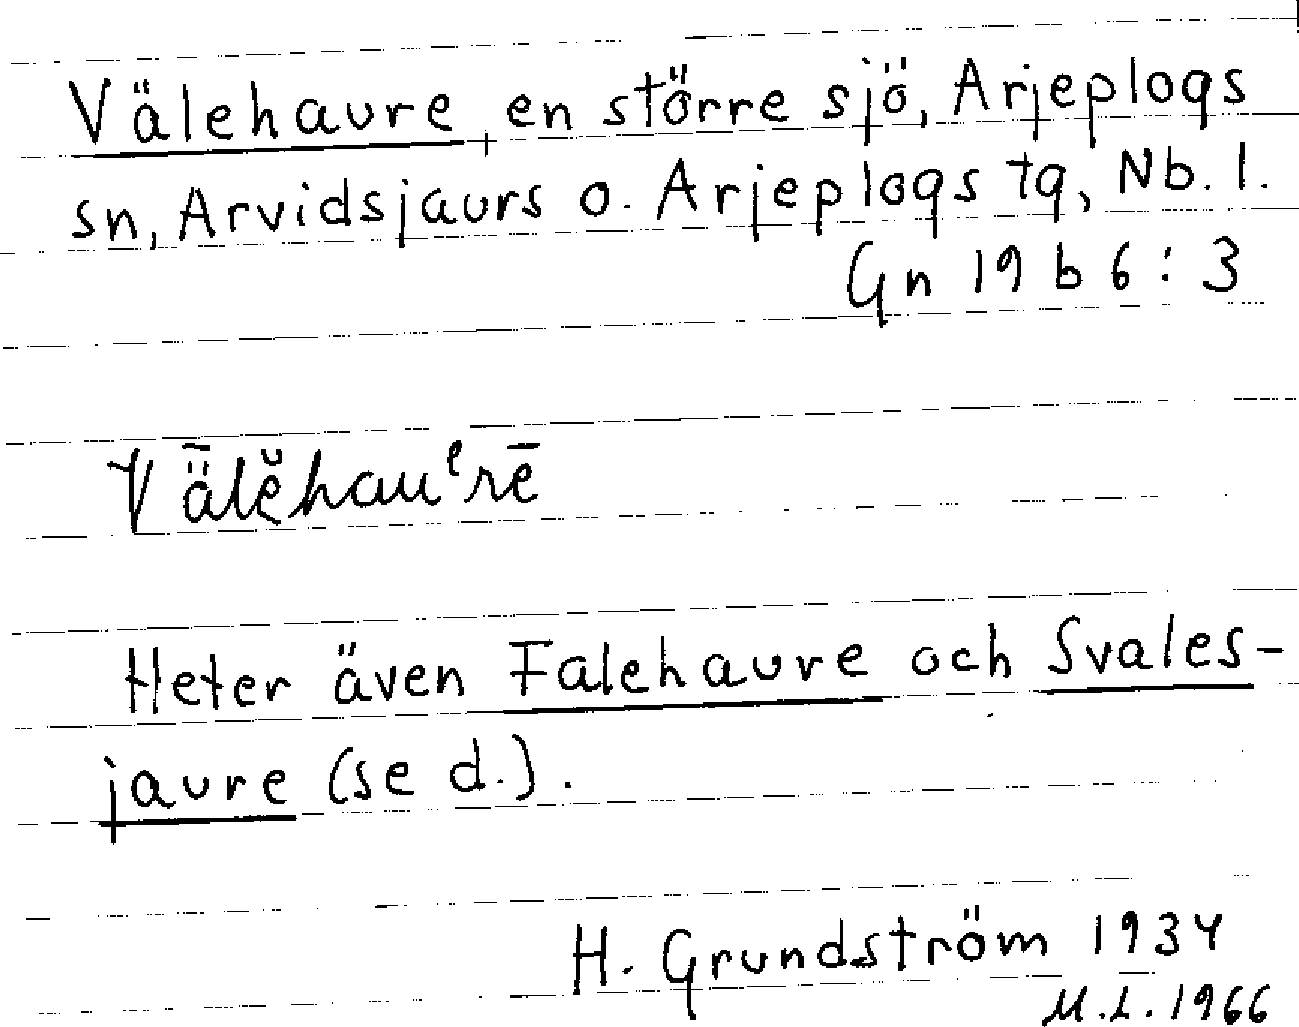 Välehaure, en större sjö, Arjeplogs
sn, Arvidsjaurs o. Arjeplogs tg, Nb. l.
Gn 19 b 6:3
Vǟlĕhauᵉrē
Heter även Falehaure och Svales-
jaure (se d.).
H. Grundström 1934
M.L. 1966